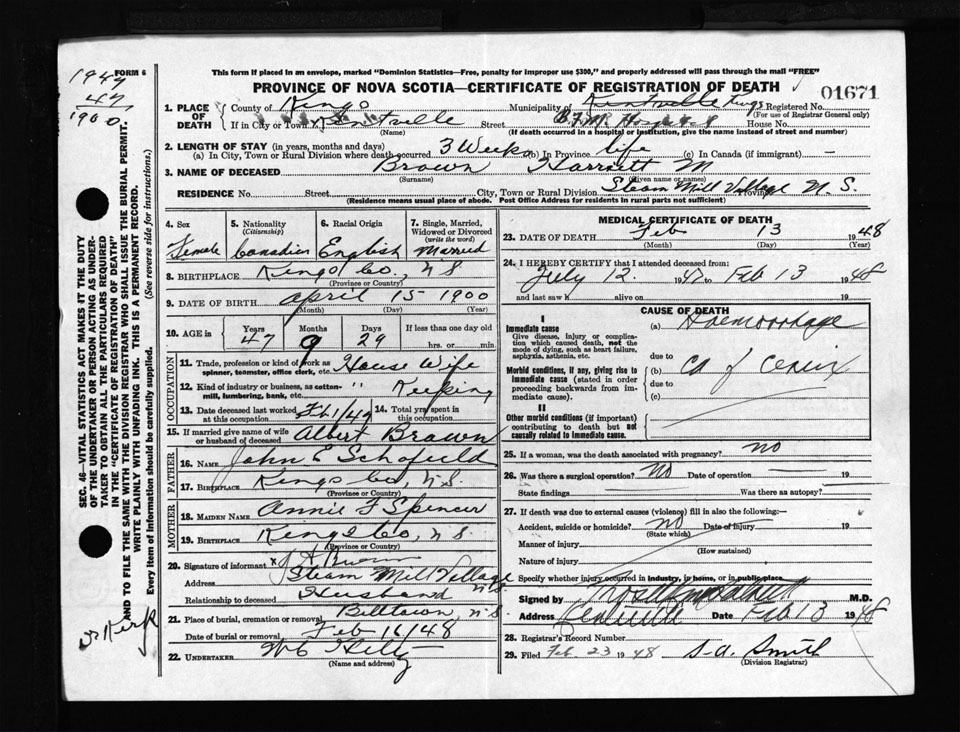 1947
47
1900
FORM 6
This form if placed in an envelope, marked "Dominion Statistics—Free, penalty for improper use $300," and properly addressed will pass through the mail "FREE"
PROVINCE OF NOVA SCOTIA—CERTIFICATE OF REGISTRATION OF DEATH
01671
1. PLACE OF DEATH County of Kings Municipality of Kentville Kings Registered No.
(For use of Registrar General only)
If in City or Town Kentville Street B.F.M. Hospital House No.
(Name) (If death occurred in a hospital or institution, give the name instead of street and number)
2. LENGTH OF STAY (in years, months and days)
(a) In City, Town or Rural Division where death occurred 3 Weeks (b) In Province life (c) In Canada (if immigrant) —
3. NAME OF DECEASED Brown Harriett M
(Surname) (Given name or names)
RESIDENCE No. Street City, Town or Rural Division Steam Mill Village Province N.S.
(Residence means usual place of abode. Post Office Address for residents in rural parts not sufficient)
4. Sex 5. Nationality (Citizenship) 6. Racial Origin 7. Single, Married, Widowed or Divorced (write the word)
Female Canadian English Married
8. BIRTHPLACE Kings Co, N.S
(Province or Country)
9. DATE OF BIRTH April 15 1900
(Month) (Day) (Year)
10. AGE in Years Months Days If less than one day old
47 9 29 hrs. or min.
OCCUPATION
11. Trade, profession or kind of work as spinner, teamster, office clerk, etc. House Wife
12. Kind of industry or business, as cotton-mill, lumbering, bank, etc. " Keeping
13. Date deceased last worked at this occupation 14. Total yrs. spent in this occupation
15. If married give name of wife or husband of deceased Albert Brown
FATHER
16. NAME John E Schofield
17. BIRTHPLACE Kings Co, N.S.
(Province or Country)
MOTHER
18. MAIDEN NAME Annie F Spencer
19. BIRTHPLACE Kings Co, N.S.
(Province or Country)
20. Signature of informant x
Address Steam Mill Village N.S.
Relationship to deceased Husband
21. Place of burial, cremation or removal Billtown, N.S
Date of burial or removal Feb 16/48
22. UNDERTAKER
(Name and address)
MEDICAL CERTIFICATE OF DEATH
23. DATE OF DEATH Feb 13 1948
(Month) (Day) (Year)
24. I HEREBY CERTIFY that I attended deceased from:
July 12 1947 to Feb 13 1948
and last saw h alive on 19
CAUSE OF DEATH
I
Immediate cause
Give disease, injury or complication which caused death, not the mode of dying, such as heart failure, asphyxia, asthenia, etc.
(a) Haemorrhage
due to
Morbid conditions, if any, giving rise to immediate cause (stated in order proceeding backwards from immediate cause).
(b) Ca of Cervix
due to
(c)
II
Other morbid conditions (if important) contributing to death but not causally related to immediate cause.
25. If a woman, was the death associated with pregnancy? no
26. Was there a surgical operation? No Date of operation 19
State findings Was there an autopsy?
27. If death was due to external causes (violence) fill in also the following:—
Accident, suicide or homicide? no Date of injury 19
(State which)
Manner of injury
(How sustained)
Nature of injury
Specify whether injury occurred in industry, in home, or in public place
Signed by M.D.
Address Kentville Date Feb 13 1948
28. Registrar's Record Number
29. Filed Feb. 23 1948 S.A. Smith
(Division Registrar)
SEC. 46—VITAL STATISTICS ACT MAKES IT THE DUTY OF THE UNDERTAKER OR PERSON ACTING AS UNDERTAKER TO OBTAIN ALL THE PARTICULARS REQUIRED IN THE "CERTIFICATE OF REGISTRATION OF DEATH" AND TO FILE THE SAME WITH THE DIVISION REGISTRAR WHO SHALL ISSUE THE BURIAL PERMIT.
WRITE PLAINLY WITH UNFADING INK. THIS IS A PERMANENT RECORD.
Every item of Information should be carefully supplied. (See reverse side for instructions.)